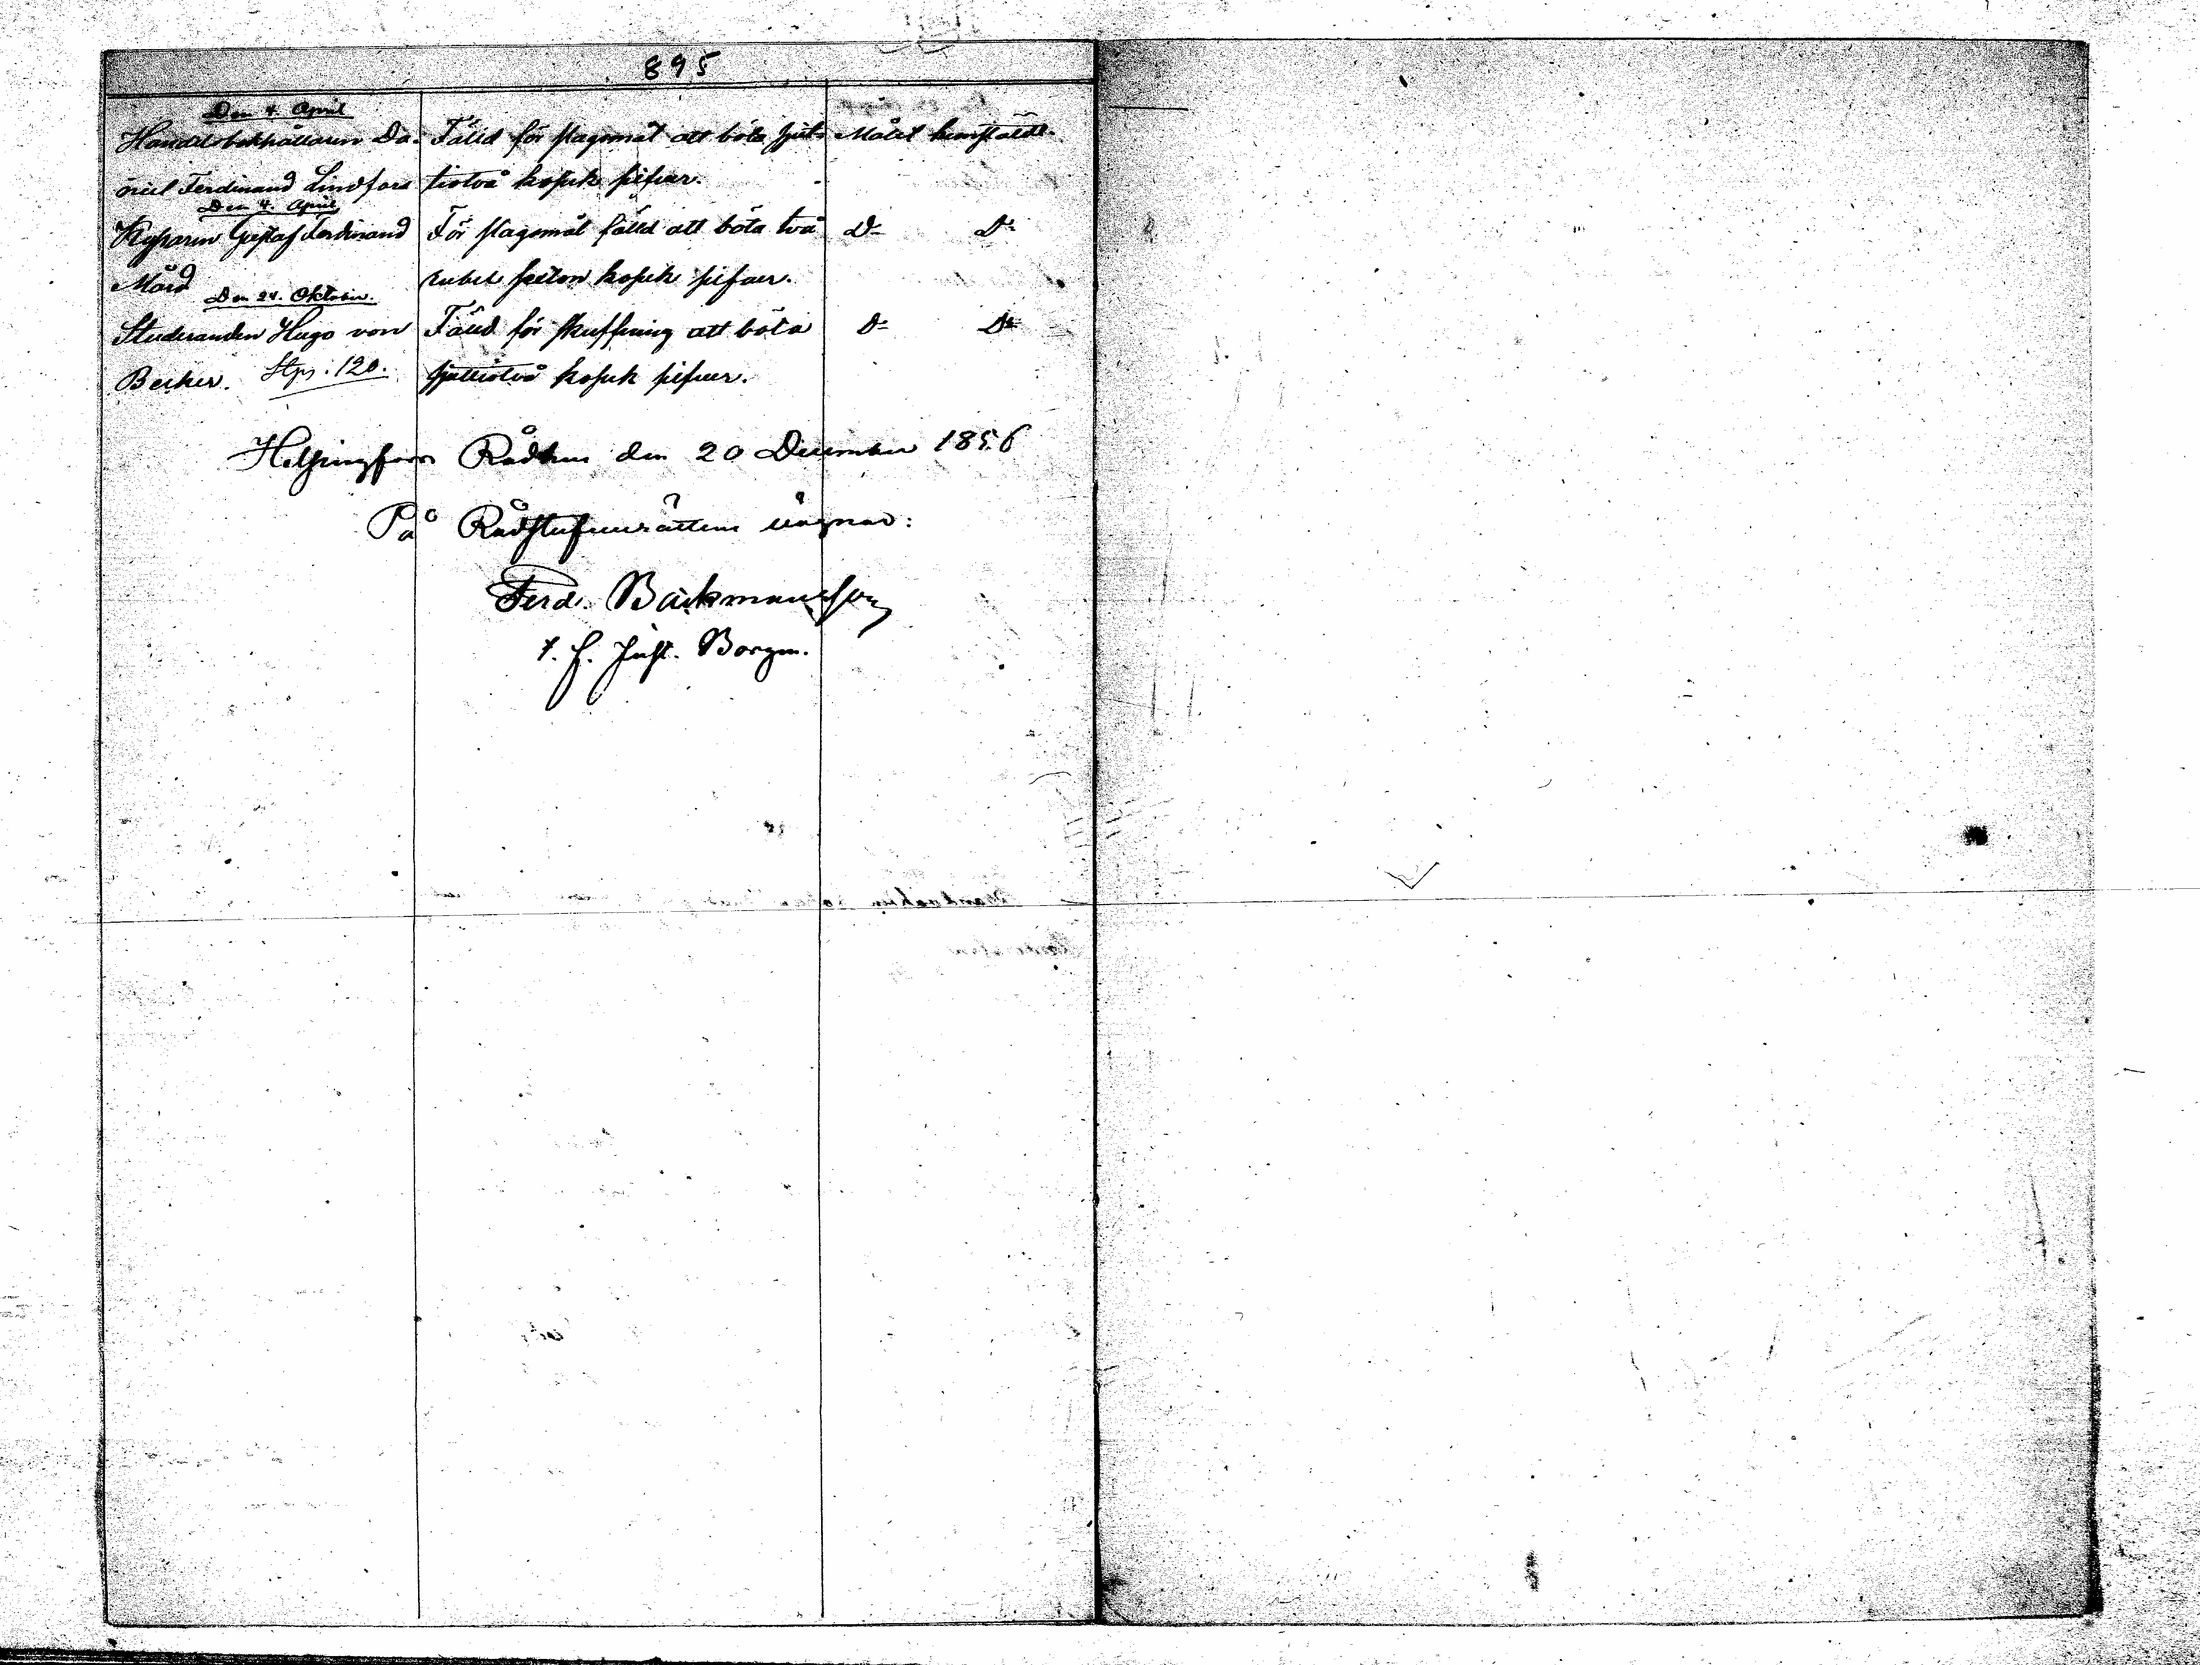 895
Den 4. April
Handelsbokhållaren Da- Fälld för slagsmål att böta sjut- Målet hemstäldt.
niel Ferdinand Lindfors tiotvå kopek silfver.
Den 4. April
Kyparen Gustaf Ferdinand För slagsmål fälld att böta två D:o D:o
Mörd rubel sexton kopek silfver.
Den 24. Oktober.
Studeranden Hugo von Fälld för skuffning att böta D:o D:o
Becker. 120. sjuttiotvå kopek silfver.
Helsingfors Rådhus den 20 December 1856
På Rådstufvurättens vägnar:
Ferd. Backmansson
t. f. Just. Borgm.